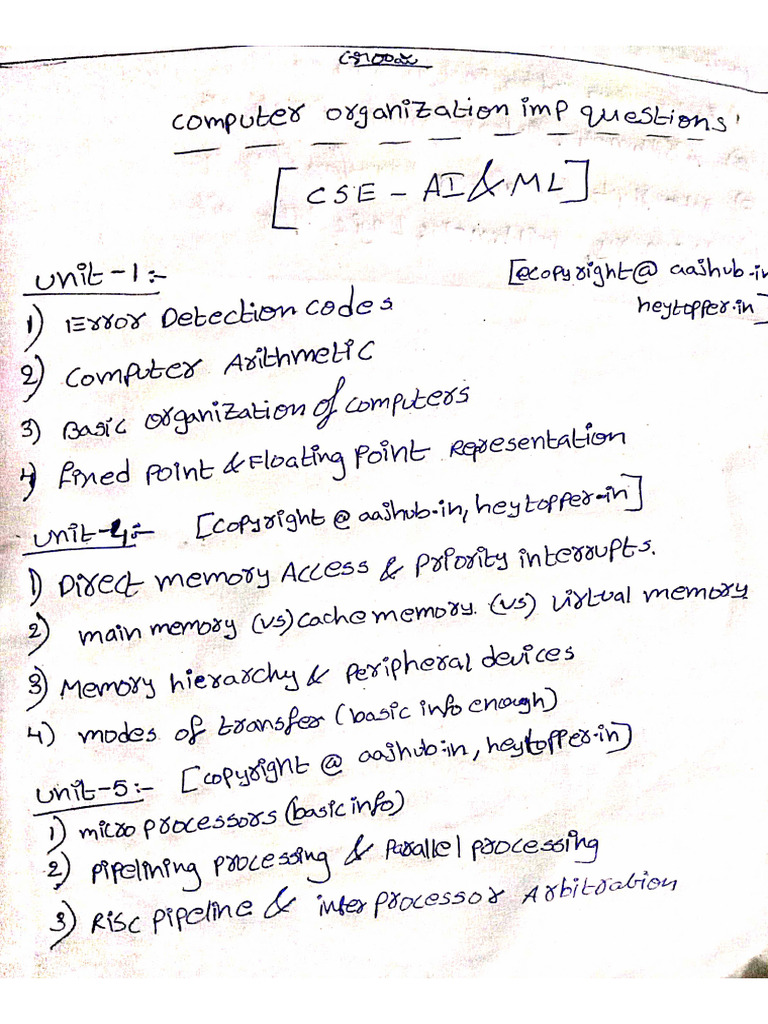 computer organization imp questions'
[CSE - AI & ML]
unit-1:-
[@copyright@ aajhub.in
heytopper.in]
1) Error Detection Codes
2) Computer Arithmetic
3) Basic organization of computers
4) fixed point & Floating point Representation
unit-4:- [copyright @ aajhub.in, heytopper.in]
1) Direct memory Access & Priority interrupts.
2) main memory (vs) cache memory. (vs) virtual memory
3) Memory hierarchy & peripheral devices
4) modes of transfer (basic info enough)
unit-5:- [copyright @ aajhub.in, heytopper.in]
1) micro processors (basic info)
2) pipelining processing & parallel processing
3) RISC pipeline & inter processor Arbitration